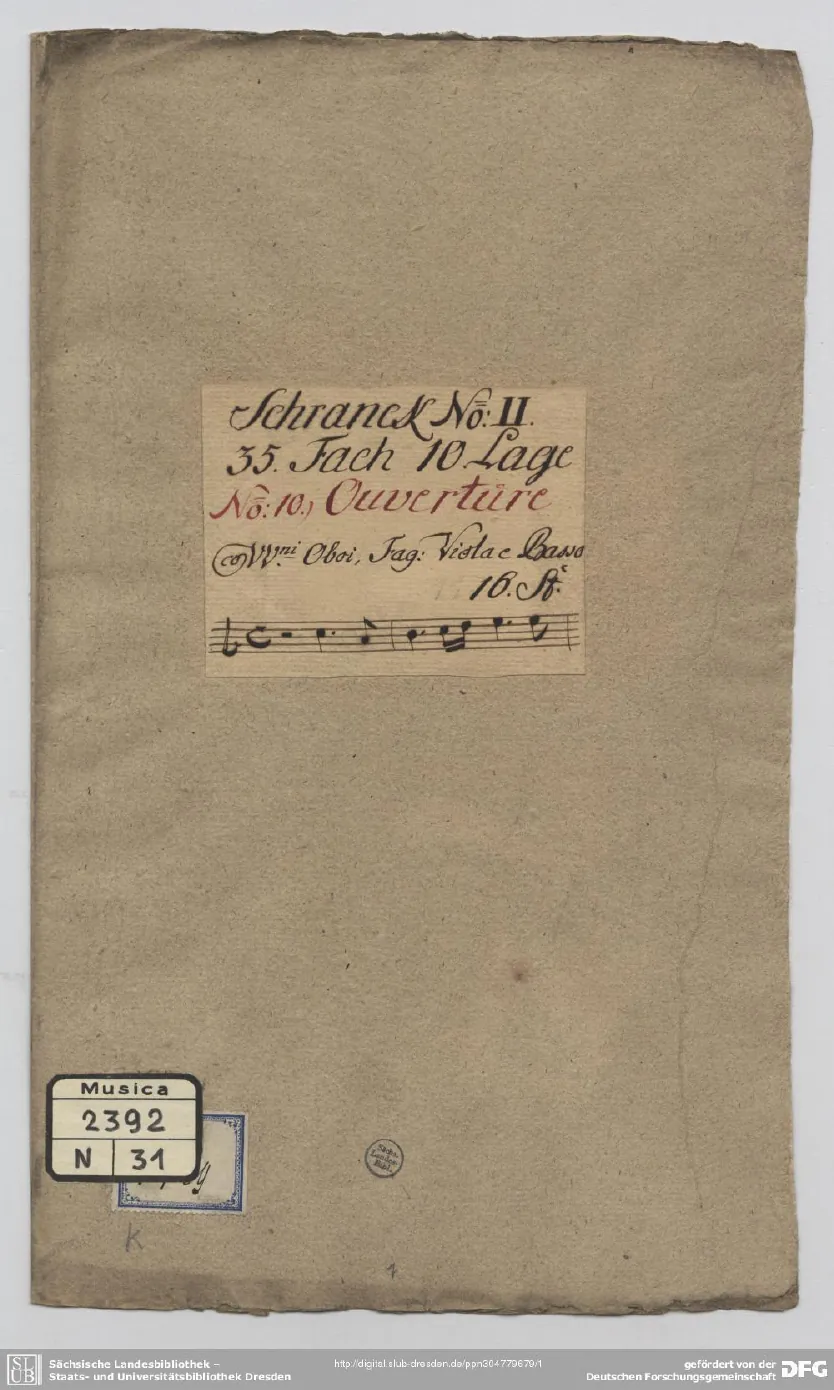 Schranck No: II.
35. Fach 10. Lage
No: 10.) Ouvertüre
co VVni Oboi, Fag: Viola e Basso
16. St.
Musica
2392
N 31
Sächs.
Landes-
Bibl.
K
1
SLUB
Sächsische Landesbibliothek –
Staats- und Universitätsbibliothek Dresden
http://digital.slub-dresden.de/ppn304779679/1
gefördert von der
Deutschen Forschungsgemeinschaft
DFG